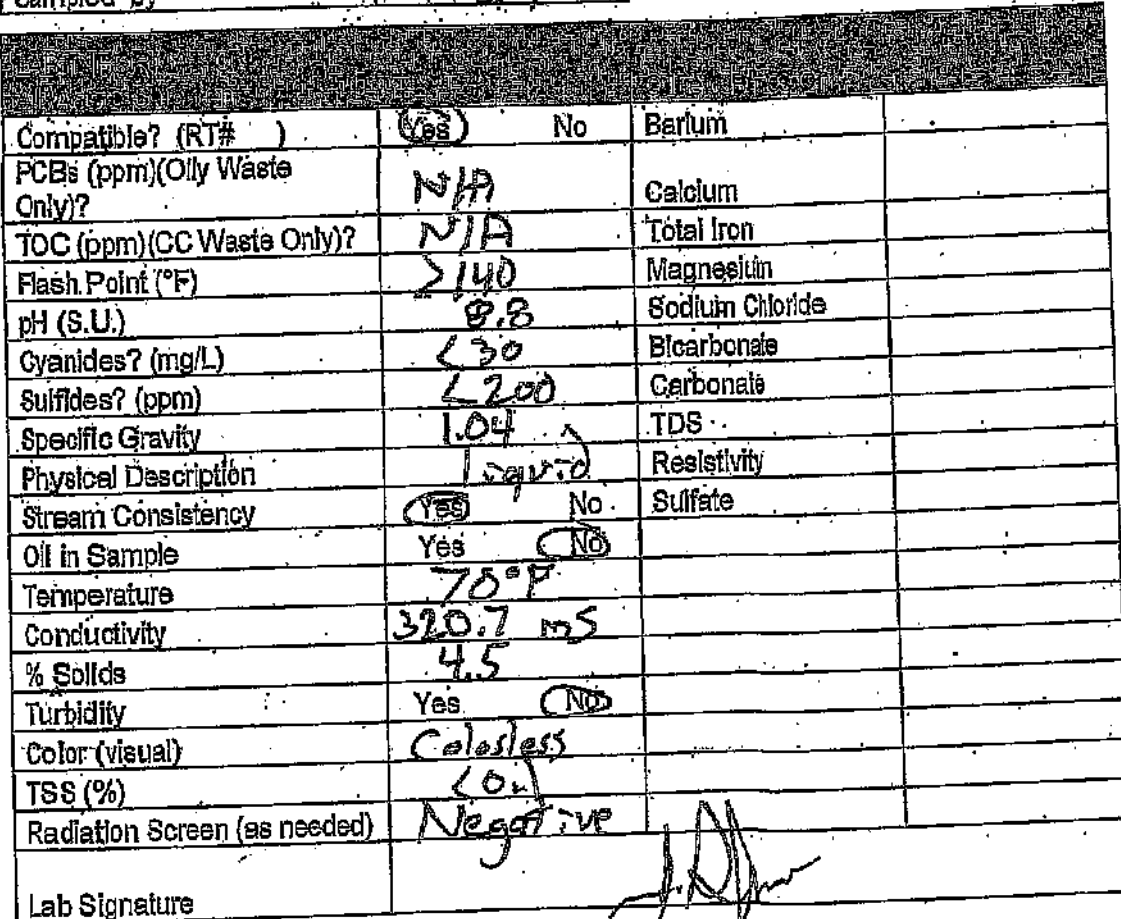 Sampled by
Compatible? (RT# ) Yes No Barium
PCBs (ppm)(Oily Waste
Only)? N/A Calcium
TOC (ppm)(CC Waste Only)? N/A Total Iron
Flash Point (°F) >140 Magnesium
pH (S.U.) 8.8 Sodium Chloride
Cyanides? (mg/L) <30 Bicarbonate
Sulfides? (ppm) <200 Carbonate
Specific Gravity 1.04 TDS
Physical Description liquid Resistivity
Stream Consistency Yes No Sulfate
Oil in Sample Yes No
Temperature 70°F
Conductivity 320.7 mS
% Solids 4.5
Turbidity Yes No
Color (visual) Colorless
TSS (%) <0.1
Radiation Screen (as needed) Negative
Lab Signature